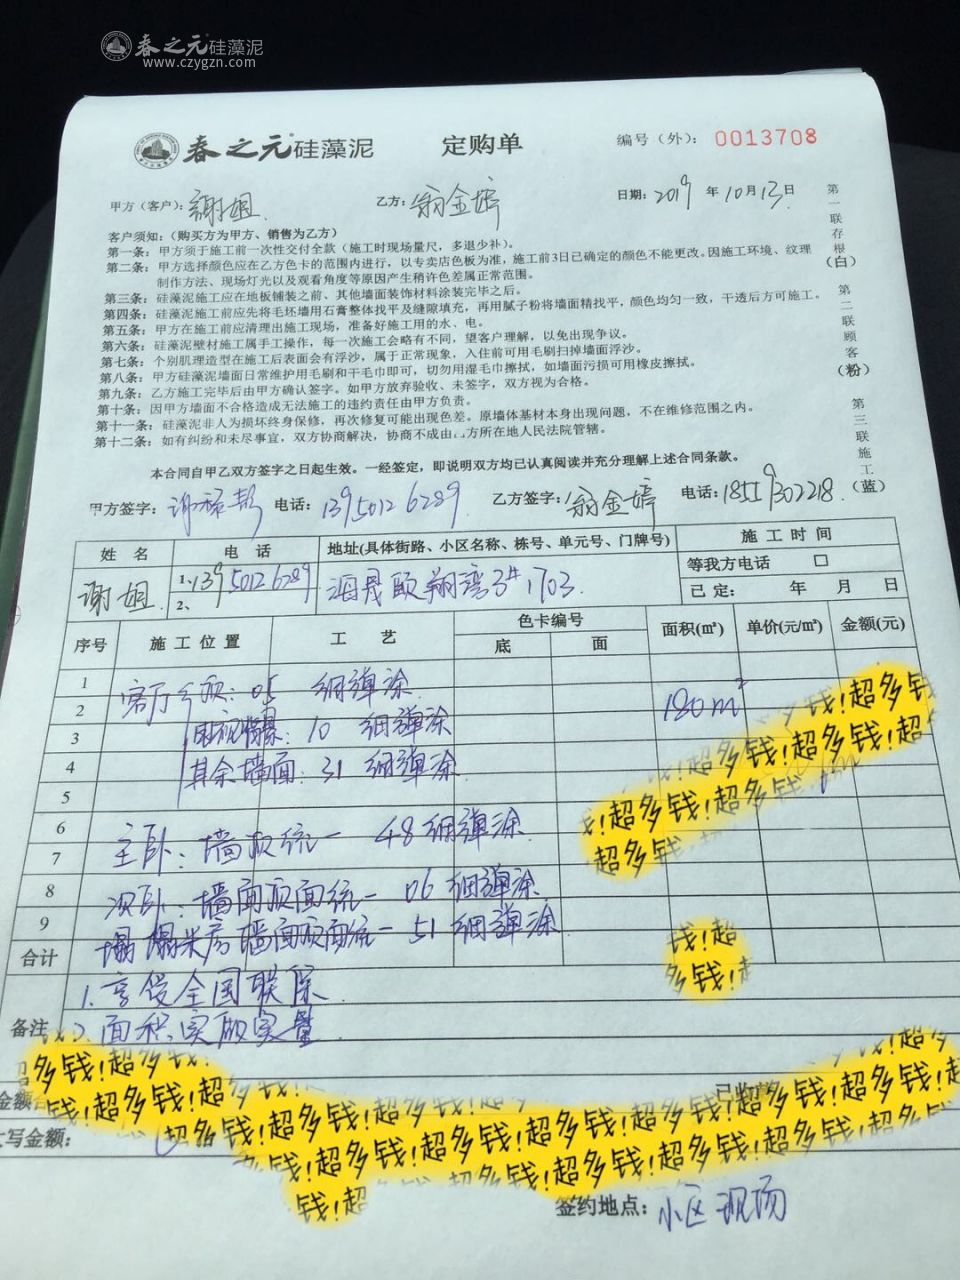 春之元硅藻泥
www.czygzn.com
春之元硅藻泥 定购单 编号（外）：0013708
甲方（客户）：謝姐 乙方：翁金婷 日期：2019年10月13日
客户须知：（购买方为甲方、销售为乙方）
第一条：甲方须于施工前一次性交付全款（施工时现场量尺，多退少补）。
第二条：甲方选择颜色应在乙方色卡的范围内进行，以专卖店色板为准，施工前3日已确定的颜色不能更改。因施工环境、纹理
制作方法、现场灯光以及观看角度等原因产生稍许色差属正常范围。
第三条：硅藻泥施工应在地板铺装之前、其他墙面装饰材料涂装完毕之后。
第四条：硅藻泥施工前应先将毛坯墙用石膏整体找平及缝隙填充，再用腻子粉将墙面精找平，颜色均匀一致，干透后方可施工。
第五条：甲方在施工前应清理出施工现场，准备好施工用的水、电。
第六条：硅藻泥壁材施工属手工操作，每一次施工会略有不同，望客户理解，以免出现争议。
第七条：个别肌理造型在施工后表面会有浮沙，属于正常现象，入住前可用毛刷扫掉墙面浮沙。
第八条：甲方硅藻泥墙面日常维护用毛刷和干毛巾即可，切勿用湿毛巾擦拭，如墙面污损可用橡皮擦拭。
第九条：乙方施工完毕后由甲方确认签字。如甲方放弃验收、未签字，双方视为合格。
第十条：因甲方墙面不合格造成无法施工的违约责任由甲方负责。
第十一条：硅藻泥非人为损坏终身保修，再次修复可能出现色差。原墙体基材本身出现问题，不在维修范围之内。
第十二条：如有纠纷和未尽事宜，双方协商解决，协商不成由 方所在地人民法院管辖。
第一联存根（白） 第二联顾客（粉） 第三联施工（蓝）
本合同自甲乙双方签字之日起生效。一经签定，即说明双方均已认真阅读并充分理解上述合同条款。
甲方签字： 电话：13950126289 乙方签字：翁金婷 电话：18559302218
姓 名 电 话 地址(具体街路、小区名称、栋号、单元号、门牌号) 施 工 时 间
谢姐 1、13950126289 海晟欧翔湾3# 1703 等我方电话 □
2、 已定： 年 月 日
序号 施工位置 工 艺 色卡编号 面积(㎡) 单价(元/㎡) 金额(元)
底 面
1
客厅 顶：05 细弹涂 180m²
2
电视背景：10 细弹涂
3
其余墙面：31 细弹涂
4
5
6
主卧：墙顶统一 48细弹涂
7
8
次卧：墙面顶面统一 06 细弹涂
9
榻榻米房墙面顶面统一 51 细弹涂
合计
1.享受全国联保
备注
2.面积实做实量
超多钱!超多钱!超多钱!
钱!超多钱!
已收
写金额：
签约地点：小区现场